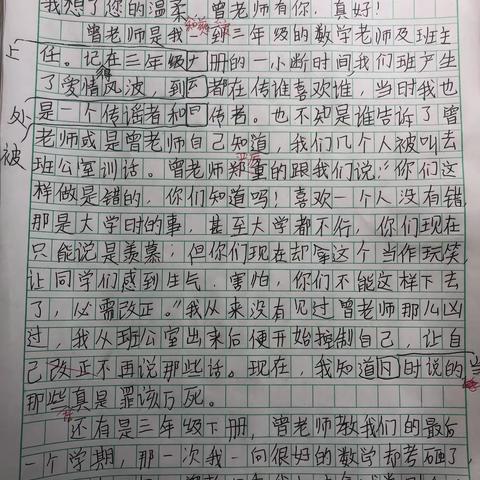 我想了您的温柔。曾老师有你,真好!
曾老师是我一到三年级的数学老师及班主
任。记在三年级上册的一小断时间,我们班产生
了爱情风波,到处都在传谁喜欢谁,当时我也
是一个传谣者和被传者。也不知是谁告诉了曾
老师或是曾老师自己知道,我们几个人被叫去
班公室训话。曾老师郑重的跟我们说:“你们这
样做是错的,你们知道吗!喜欢一个人没有错,
那是大学时的事,甚至大学都不行,你们现在
只能说是羡慕;但你们现在却拿这个当作玩笑,
让同学们感到生气、害怕,你们不能这样下去
了,必需改正。”我从来没有见过曾老师那么凶
过,我从班公室出来后便开始控制自己,让自
己改正不再说那些话。现在,我知道当时说的
那些真是罪该万死。
还有是三年级下册,曾老师教我们的最后
一个学期,那一次我一向很好的数学却考砸了,